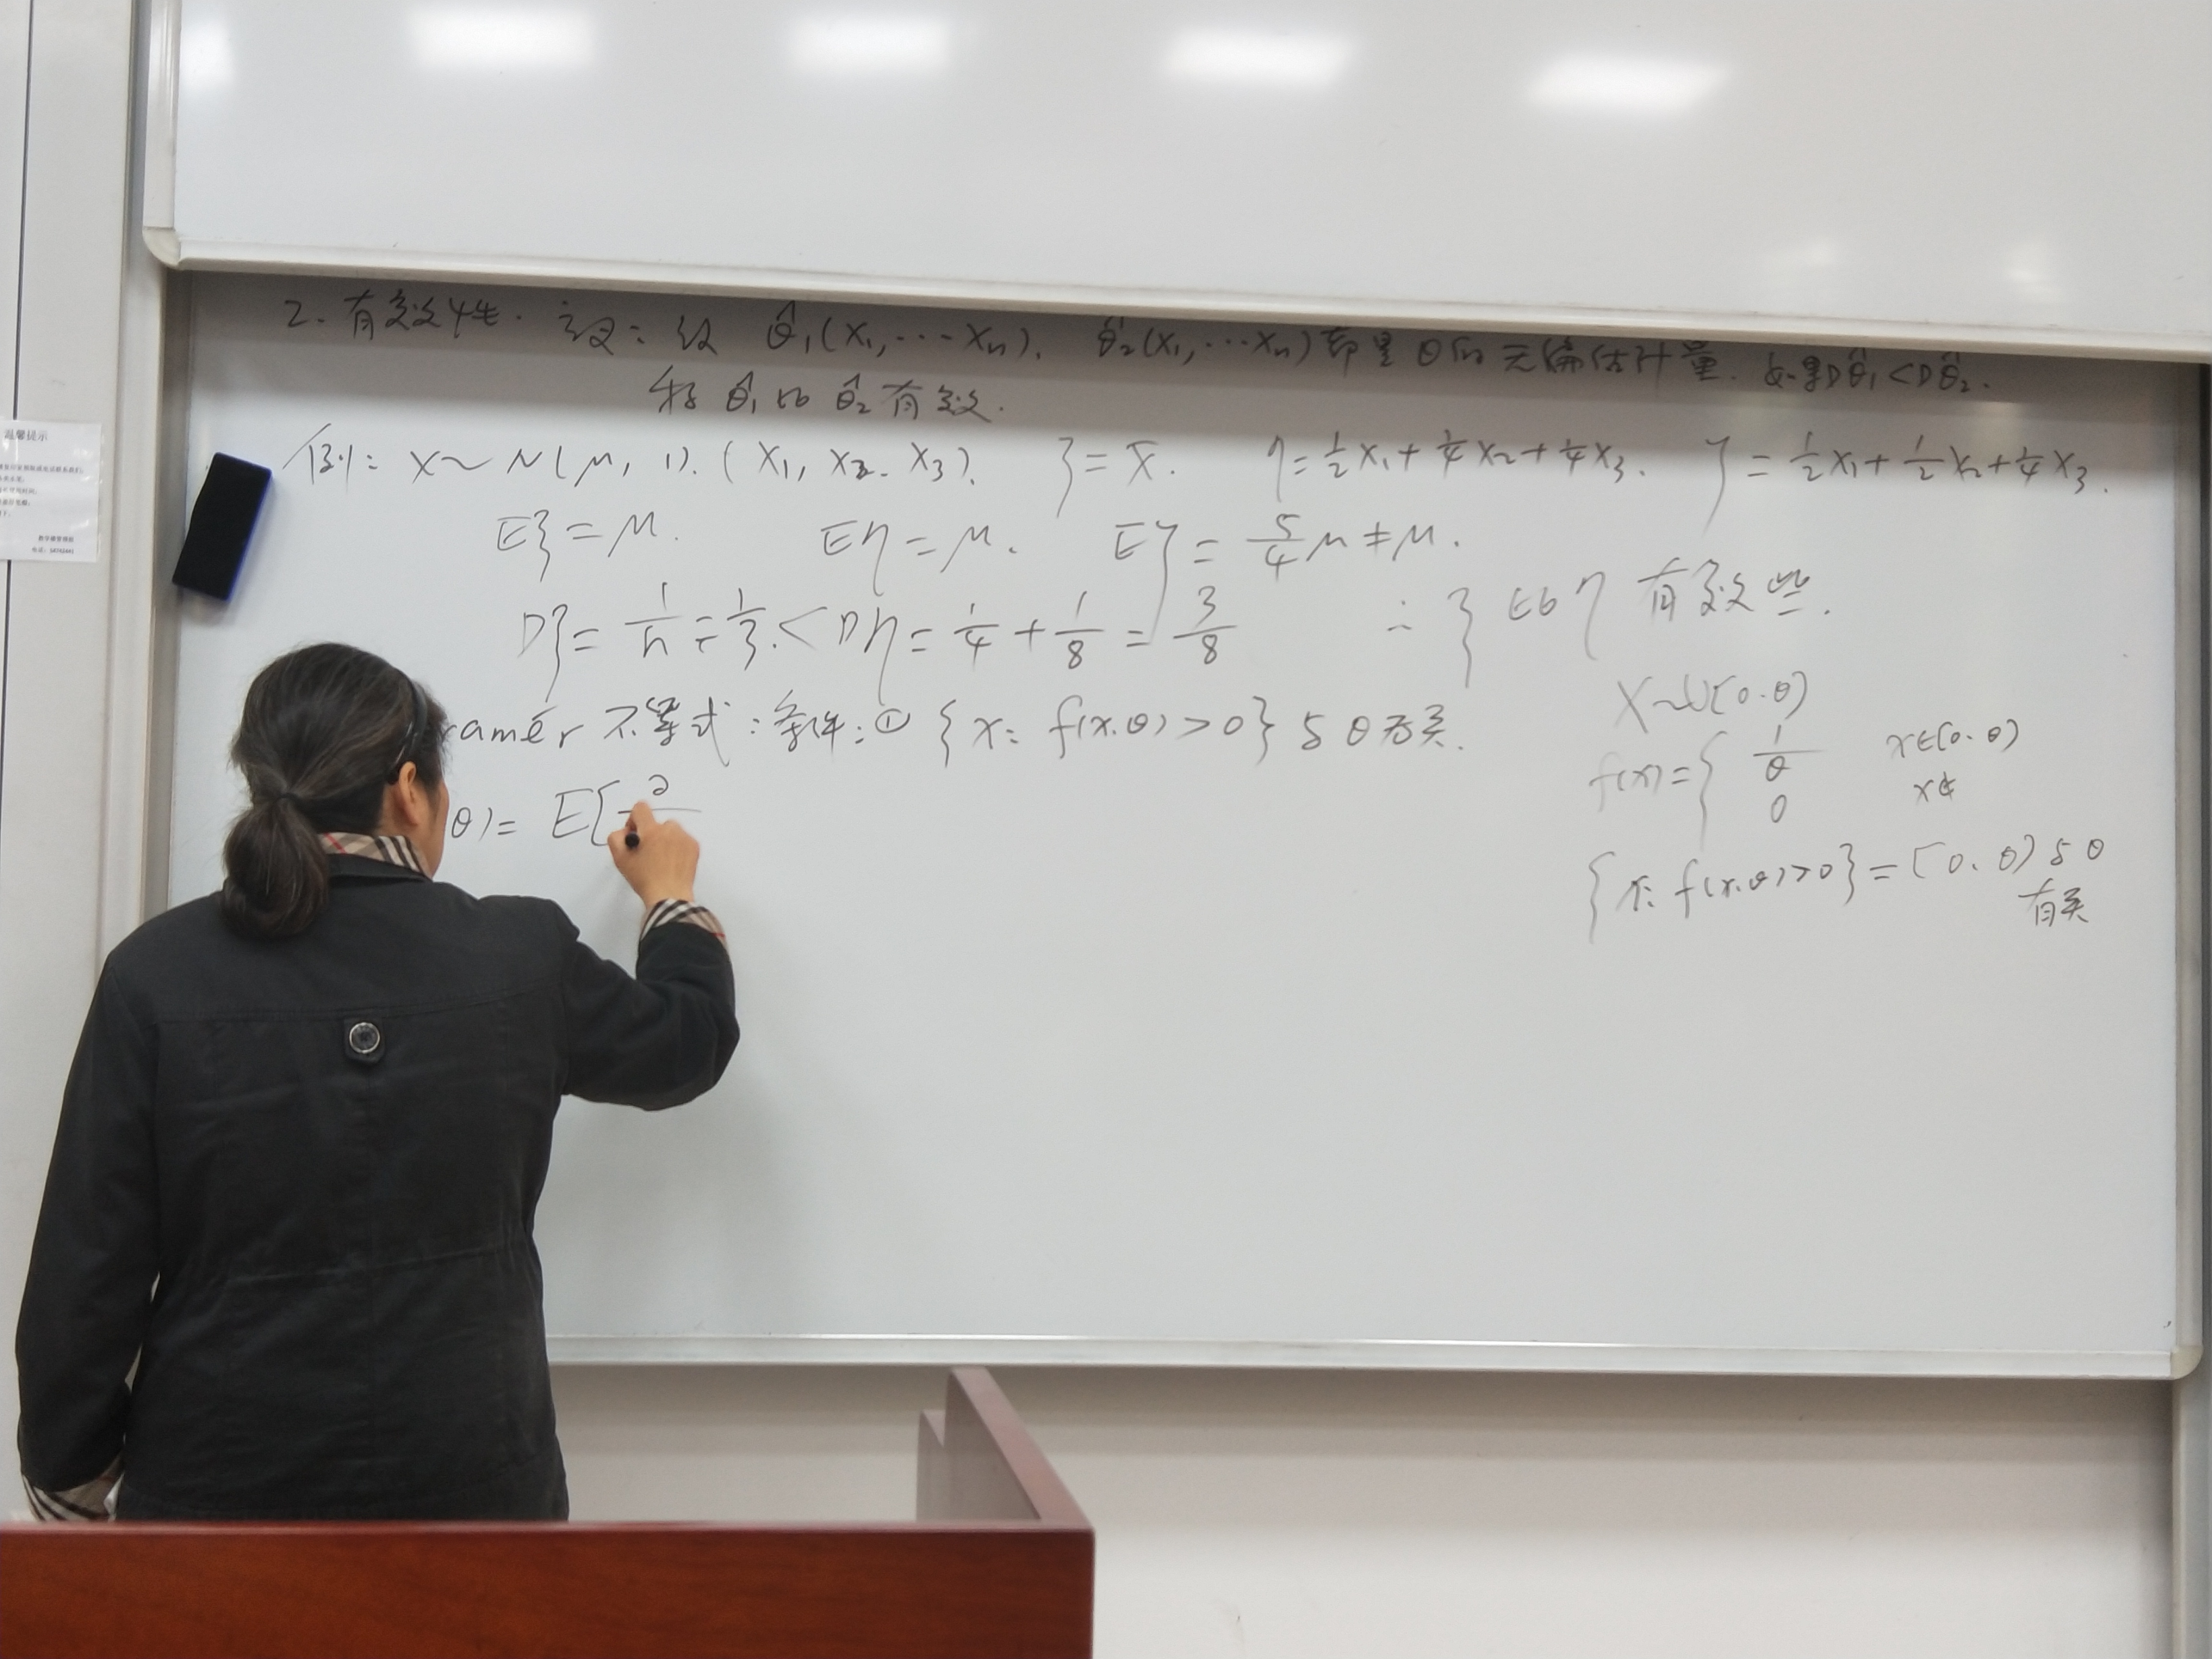 2. 有效性. 定义: 设 θ̂₁(X₁,⋯Xₙ). θ̂₂(X₁,⋯Xₙ)都是θ的无偏估计量. 如果Dθ̂₁<Dθ̂₂.
称 θ̂₁比 θ̂₂有效.
例: X~N(μ, 1). (X₁, X₂. X₃). ξ=X̄. η=½X₁+¼X₂+¼X₃. ζ=½X₁+½X₂+¼X₃.
Eξ=μ. Eη=μ. Eζ=5/4μ≠μ.
Dξ=1/n=1/3.<Dη=1/4+1/8=3/8 ∴ξ比η有效些.
ramer 不等式:条件:① {x: f(x.θ)>0}与θ无关.
θ)= E[∂
X~U[0.θ)
f(x)={ 1/θ x∈[0.θ)
0 x∉
{x: f(x.θ)>0}=[0.θ)与θ
有关
温馨提示